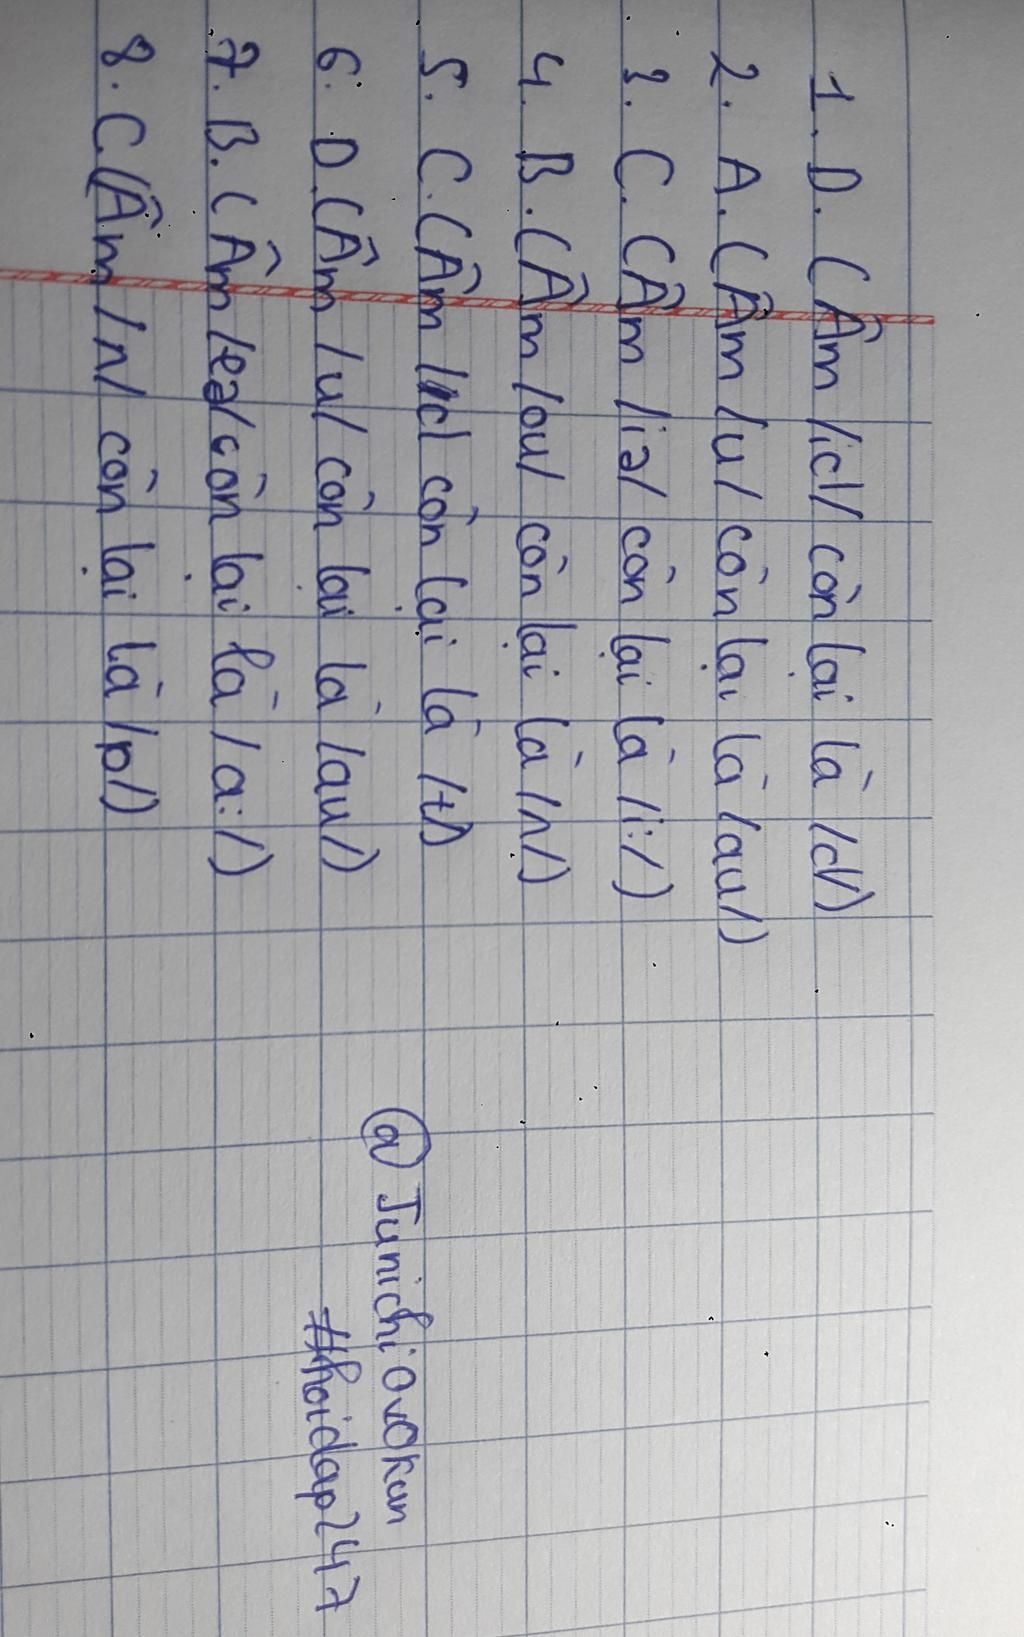 1. D. (Âm /id/ còn lại là /d/)
2. A. (Âm /u/ còn lại là /au/)
3. C. (Âm /iə/ còn lại là /i:/)
4. B. (Âm /ou/ còn lại là /ʌ/)
5. C. (Âm /id/ còn lại là /t/)
6. D. (Âm /u/ còn lại là /au/)
7. B. (Âm /eə/ còn lại là /a:/)
8. C. (Âm /n/ còn lại là /p/)
@Junichiovokun
#hoidap247